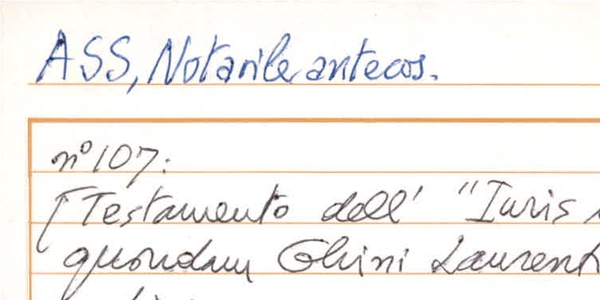 ASS, Notarile antecos.
n° 107:
[Testamento dell' "Iuris
quondam Ghini Laurenti